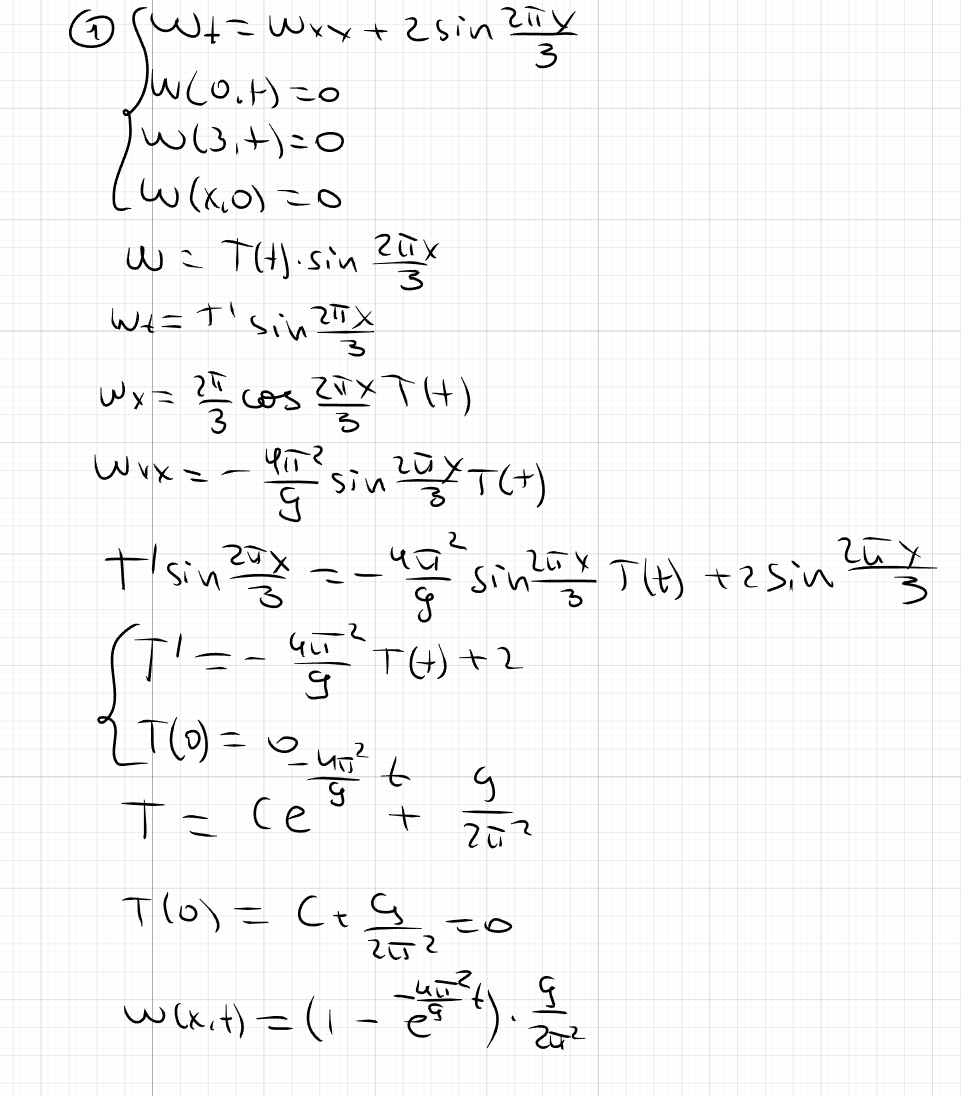 ① { w_t = w_xx + 2 sin 2πx/3
w(0,t) = 0
w(3,t) = 0
w(x,0) = 0
w = T(t)·sin 2πx/3
w_t = T' sin 2πx/3
w_x = 2π/3 cos 2πx/3 T(t)
w_xx = - 4π²/9 sin 2πx/3 T(t)
T' sin 2πx/3 = - 4π²/9 sin 2πx/3 T(t) + 2 sin 2πx/3
{ T' = - 4π²/9 T(t) + 2
T(0) = 0
T = Ce^(-4π²/9 t) + 9/2π²
T(0) = C + 9/2π² = 0
w(x,t) = (1 - e^(-4π²/9 t)) · 9/2π²